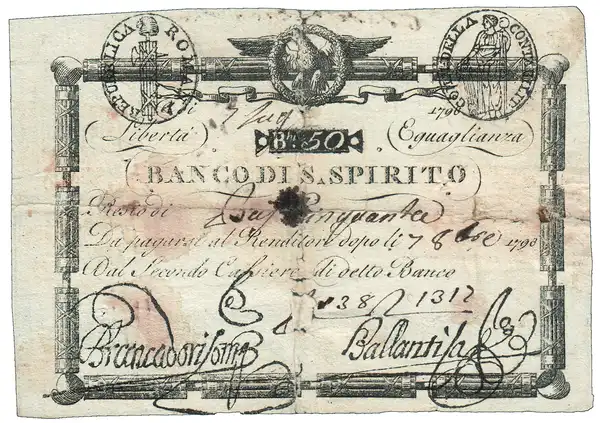 REPUBLICA ROMANA
COLLE DELLA CONTABILIT
Di 7 Lug 1798
Libertà Eguaglianza
Bai 50
BANCO DI S. SPIRITO
Resto di Baj Cinquanta
Da pagarsi al Renditore dopo li 7 8bre 1798
Dal Secondo Cassiere di detto Banco
1312
Brancadori
Ballanti